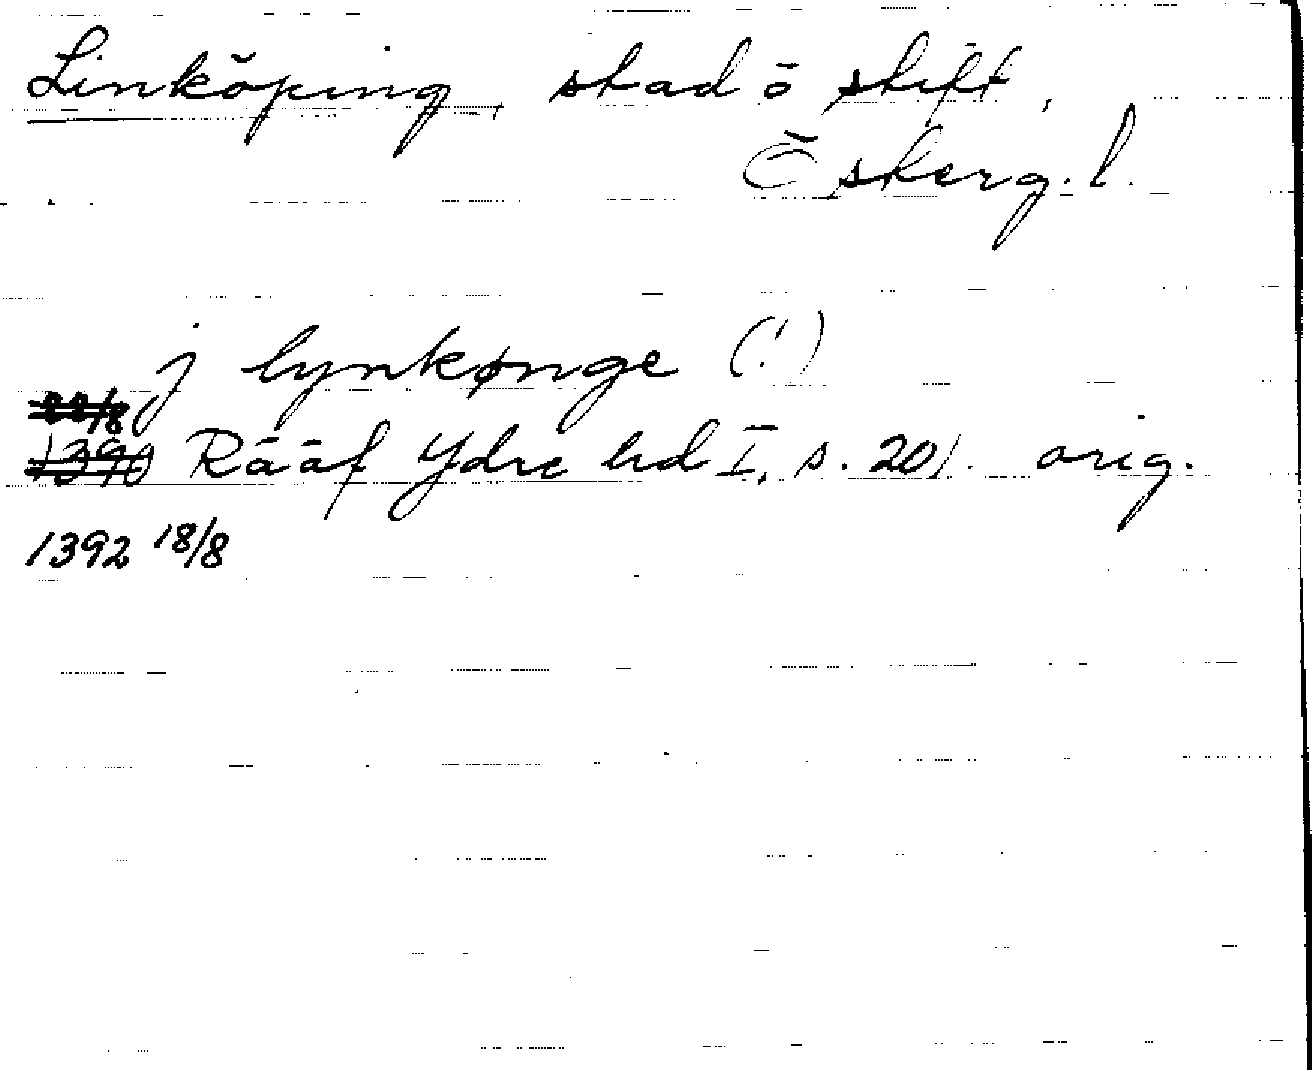 Linköping, stad o stift,
Österg. l.
j lynkønge (!)
22/8
1390 Rääf Ydre hd I, s. 201. orig.
1392 18/8